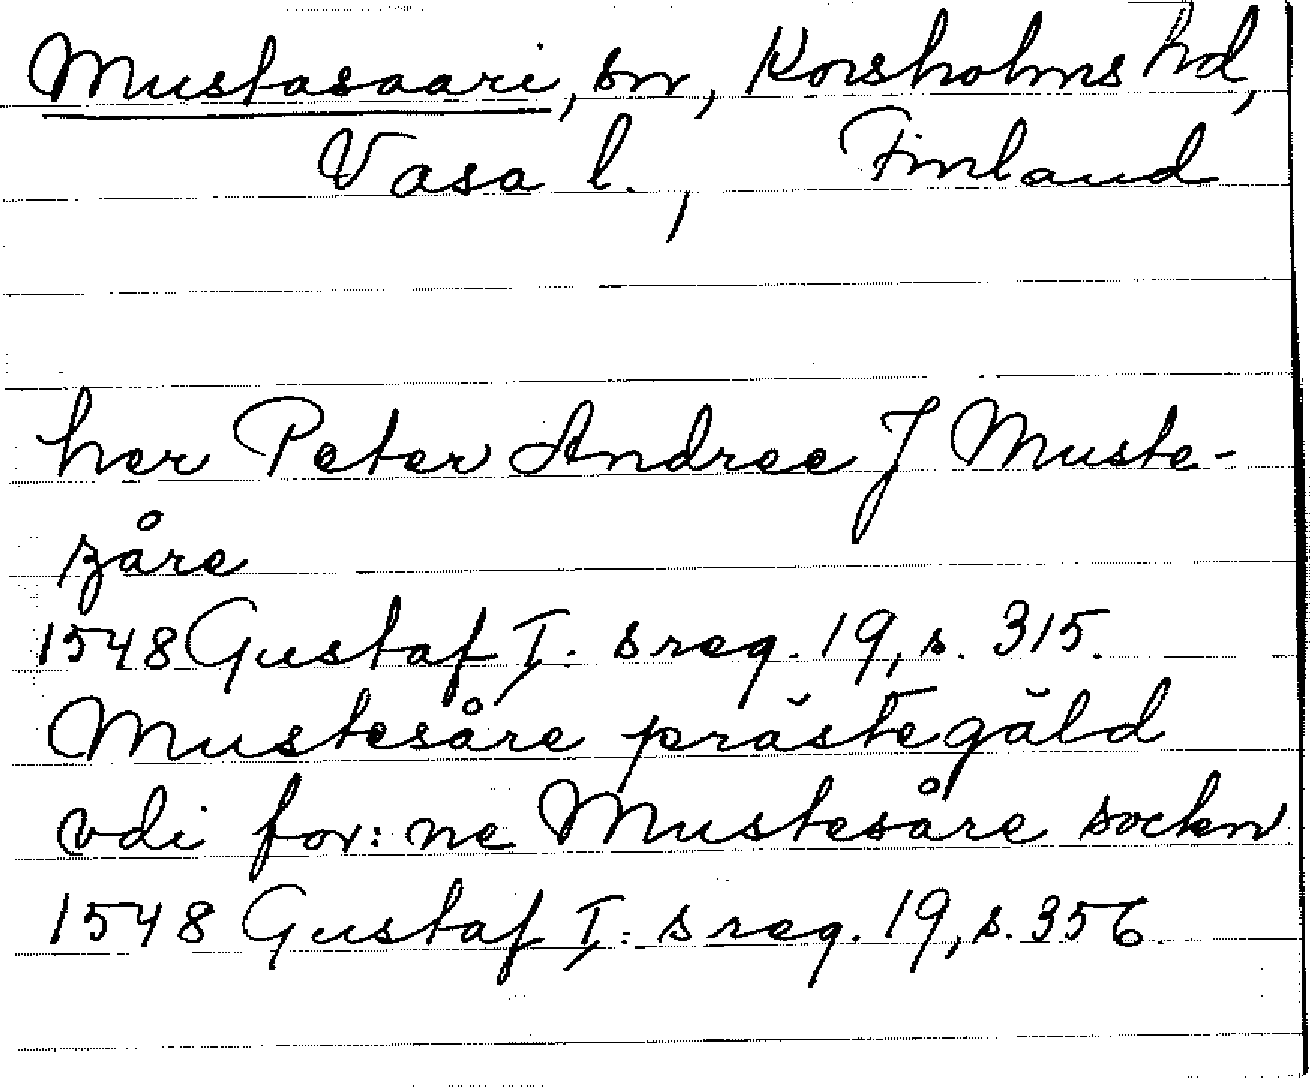 Mustasaari, sn, Korsholms hd,
Vasa l., Finland
her Peter Andree J Muste-
zåre
1548 Gustaf I: s reg. 19, s. 315.
Mustesåre prästegäld
vdi for: ne Mustesåre sockn
1548 Gustaf I: s reg. 19, s. 356.